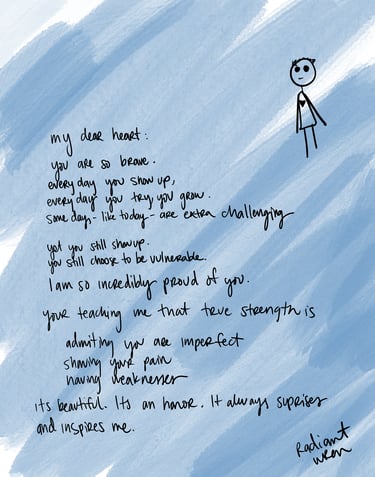 my dear heart:
you are so brave.
everyday you show up,
everyday you try, you grow.
some days - like today - are extra challenging
yet you still show up.
you still choose to be vulnerable.
I am so incredibly proud of you.
your teaching me that true strength is
admiting you are imperfect
sharing your pain
having weaknesses
its beautiful. Its an honor. It always suprises
and inspires me.
Radiant
wren